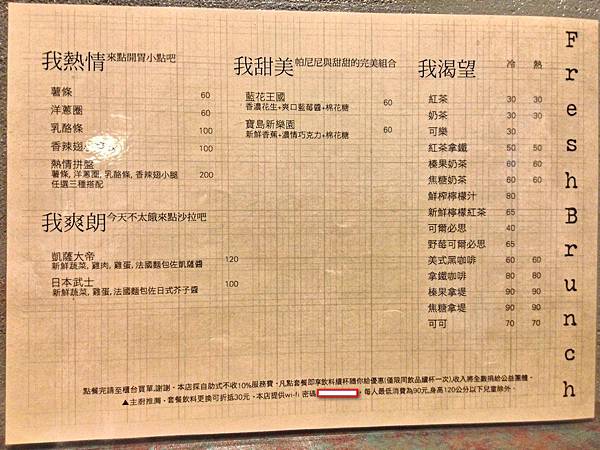 我熱情 來點開胃小點吧
薯條 60
洋蔥圈 60
乳酪條 100
香辣翅小 100
熱情拼盤 200
薯條, 洋蔥圈, 乳酪條, 香辣翅小腿
任選三種搭配
我爽朗 今天不太餓來點沙拉吧
凱薩大帝 120
新鮮蔬菜, 雞肉, 雞蛋, 法國麵包佐凱薩醬
日本武士 100
新鮮蔬菜, 雞蛋, 法國麵包佐日式芥子醬
我甜美 帕尼尼與甜甜的完美組合
藍花王國 60
香濃花生+爽口藍莓醬+棉花糖
寶島新樂園 60
新鮮香蕉+濃情巧克力+棉花糖
我渴望 冷 熱
紅茶 30 30
奶茶 30 30
可樂 30
紅茶拿鐵 50 50
榛果奶茶 60 60
焦糖奶茶 60 60
鮮榨檸檬汁 80
新鮮檸檬紅茶 65
可爾必思 40
野莓可爾必思 65
美式黑咖啡 60 60
拿鐵咖啡 80 80
榛果拿堤 90 90
焦糖拿堤 90 90
可可 70 70
Fresh Brunch
點餐完請至櫃台買單,謝謝。本店採自助式不收10%服務費。凡點套餐即享飲料續杯隨你給優惠(僅限同飲品續杯一次),收入將全數捐給公益團體。
▲主廚推薦。套餐飲料更換可折抵30元。本店提供wi-fi 密碼 。每人最低消費為90元,身高120公分以下兒童除外。